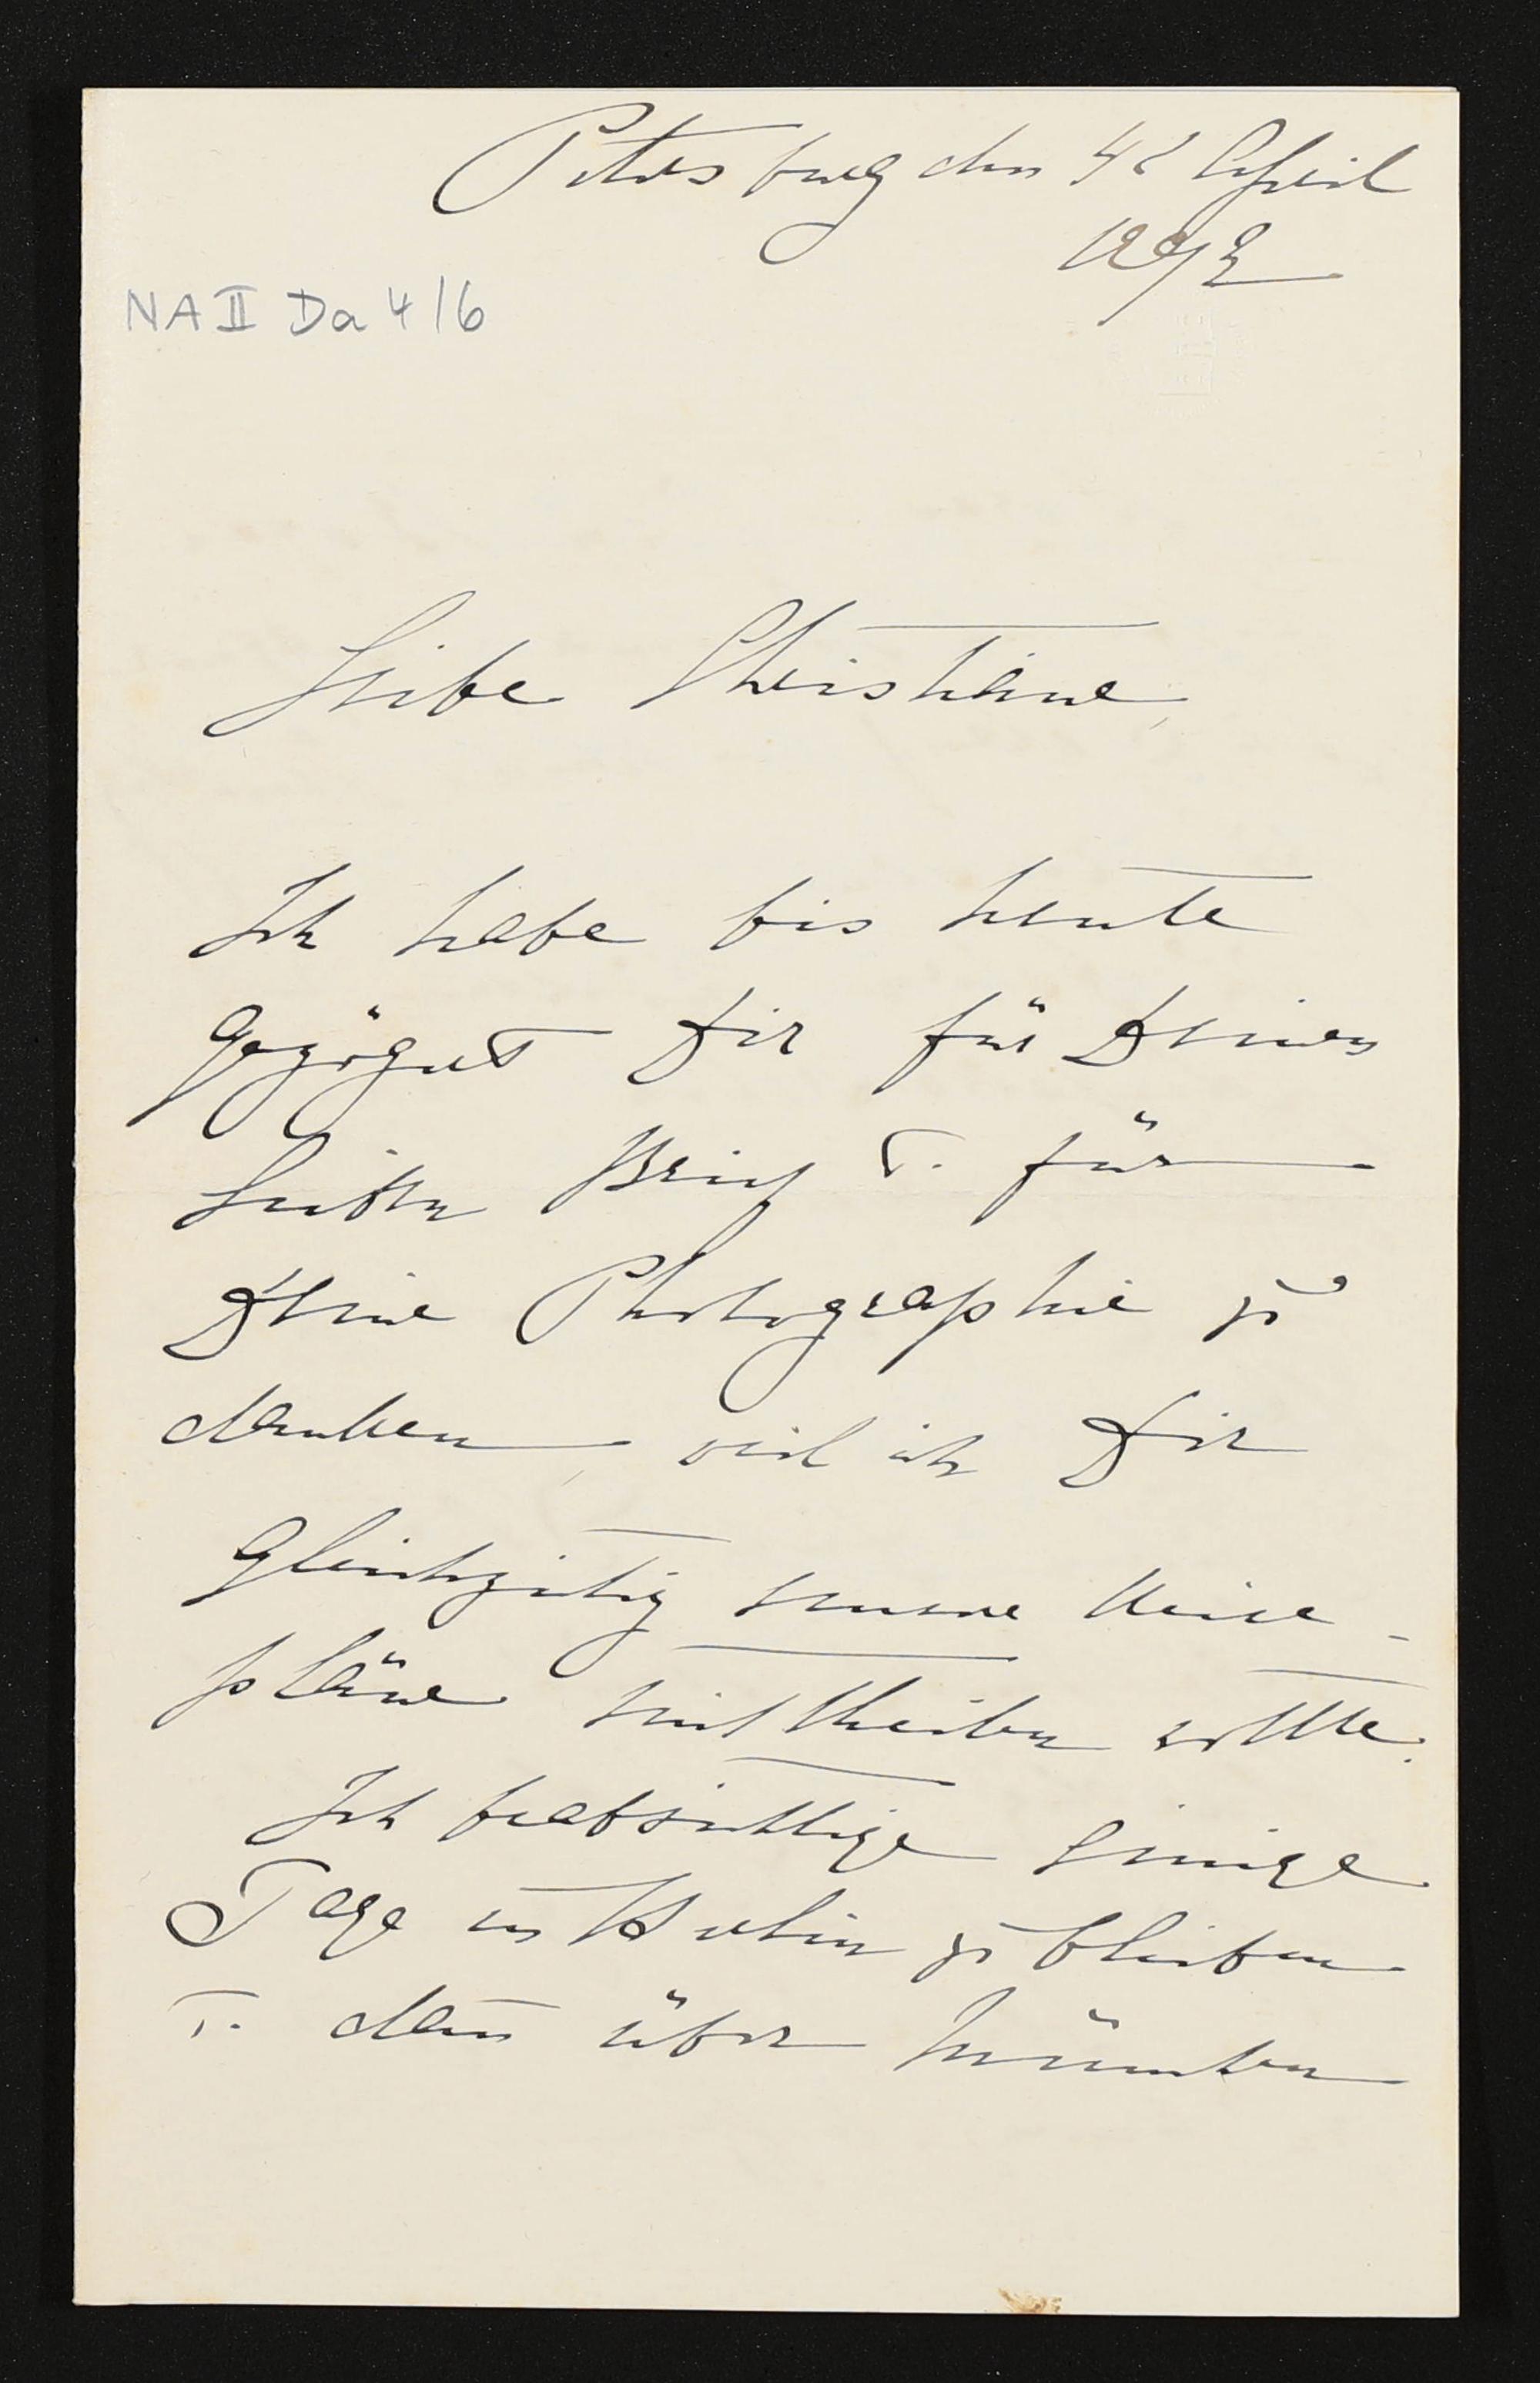 Petersburg den 4t April
1892
NA II Da 4/6
Liebe Christiane,
Ich habe bis heute
gezögert Dir für Deinen
lieben Brief u. für
Deine Photographie zu
danken, weil ich Dir
gleichzeitig meine Reise-
pläne mittheilen wollte.
Ich beabsichtige einige
Tage in Berlin zu bleiben
u. dann über München